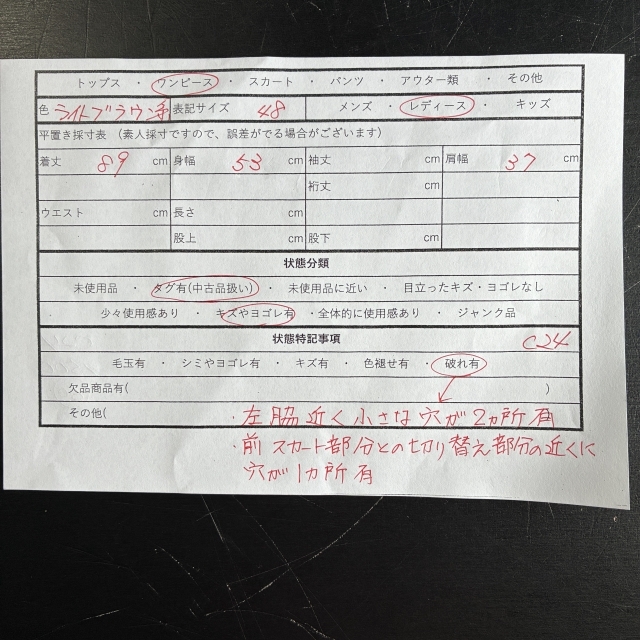 トップス ・ ワンピース ・ スカート ・ パンツ ・ アウター類 ・ その他
色 ライトブラウン系 表記サイズ 48 メンズ ・ レディース ・ キッズ
平置き採寸表 （素人採寸ですので、誤差がでる場合がございます）
着丈 89 cm 身幅 53 cm 袖丈 cm 肩幅 37 cm
裄丈 cm
ウエスト cm 長さ cm
股上 cm 股下 cm
状態分類
未使用品 ・ タグ有(中古品扱い) ・ 未使用品に近い ・ 目立ったキズ・ヨゴレなし
少々使用感あり ・ キズやヨゴレ有 ・全体的に使用感あり ・ ジャンク品
状態特記事項 C24
毛玉有 ・ シミやヨゴレ有 ・ キズ有 ・ 色褪せ有 ・ 破れ有
欠品商品有( )
その他( ・左脇近く小さな穴が2ヵ所有
・前スカート部分との切り替え部分の近くに
穴が1ヵ所有